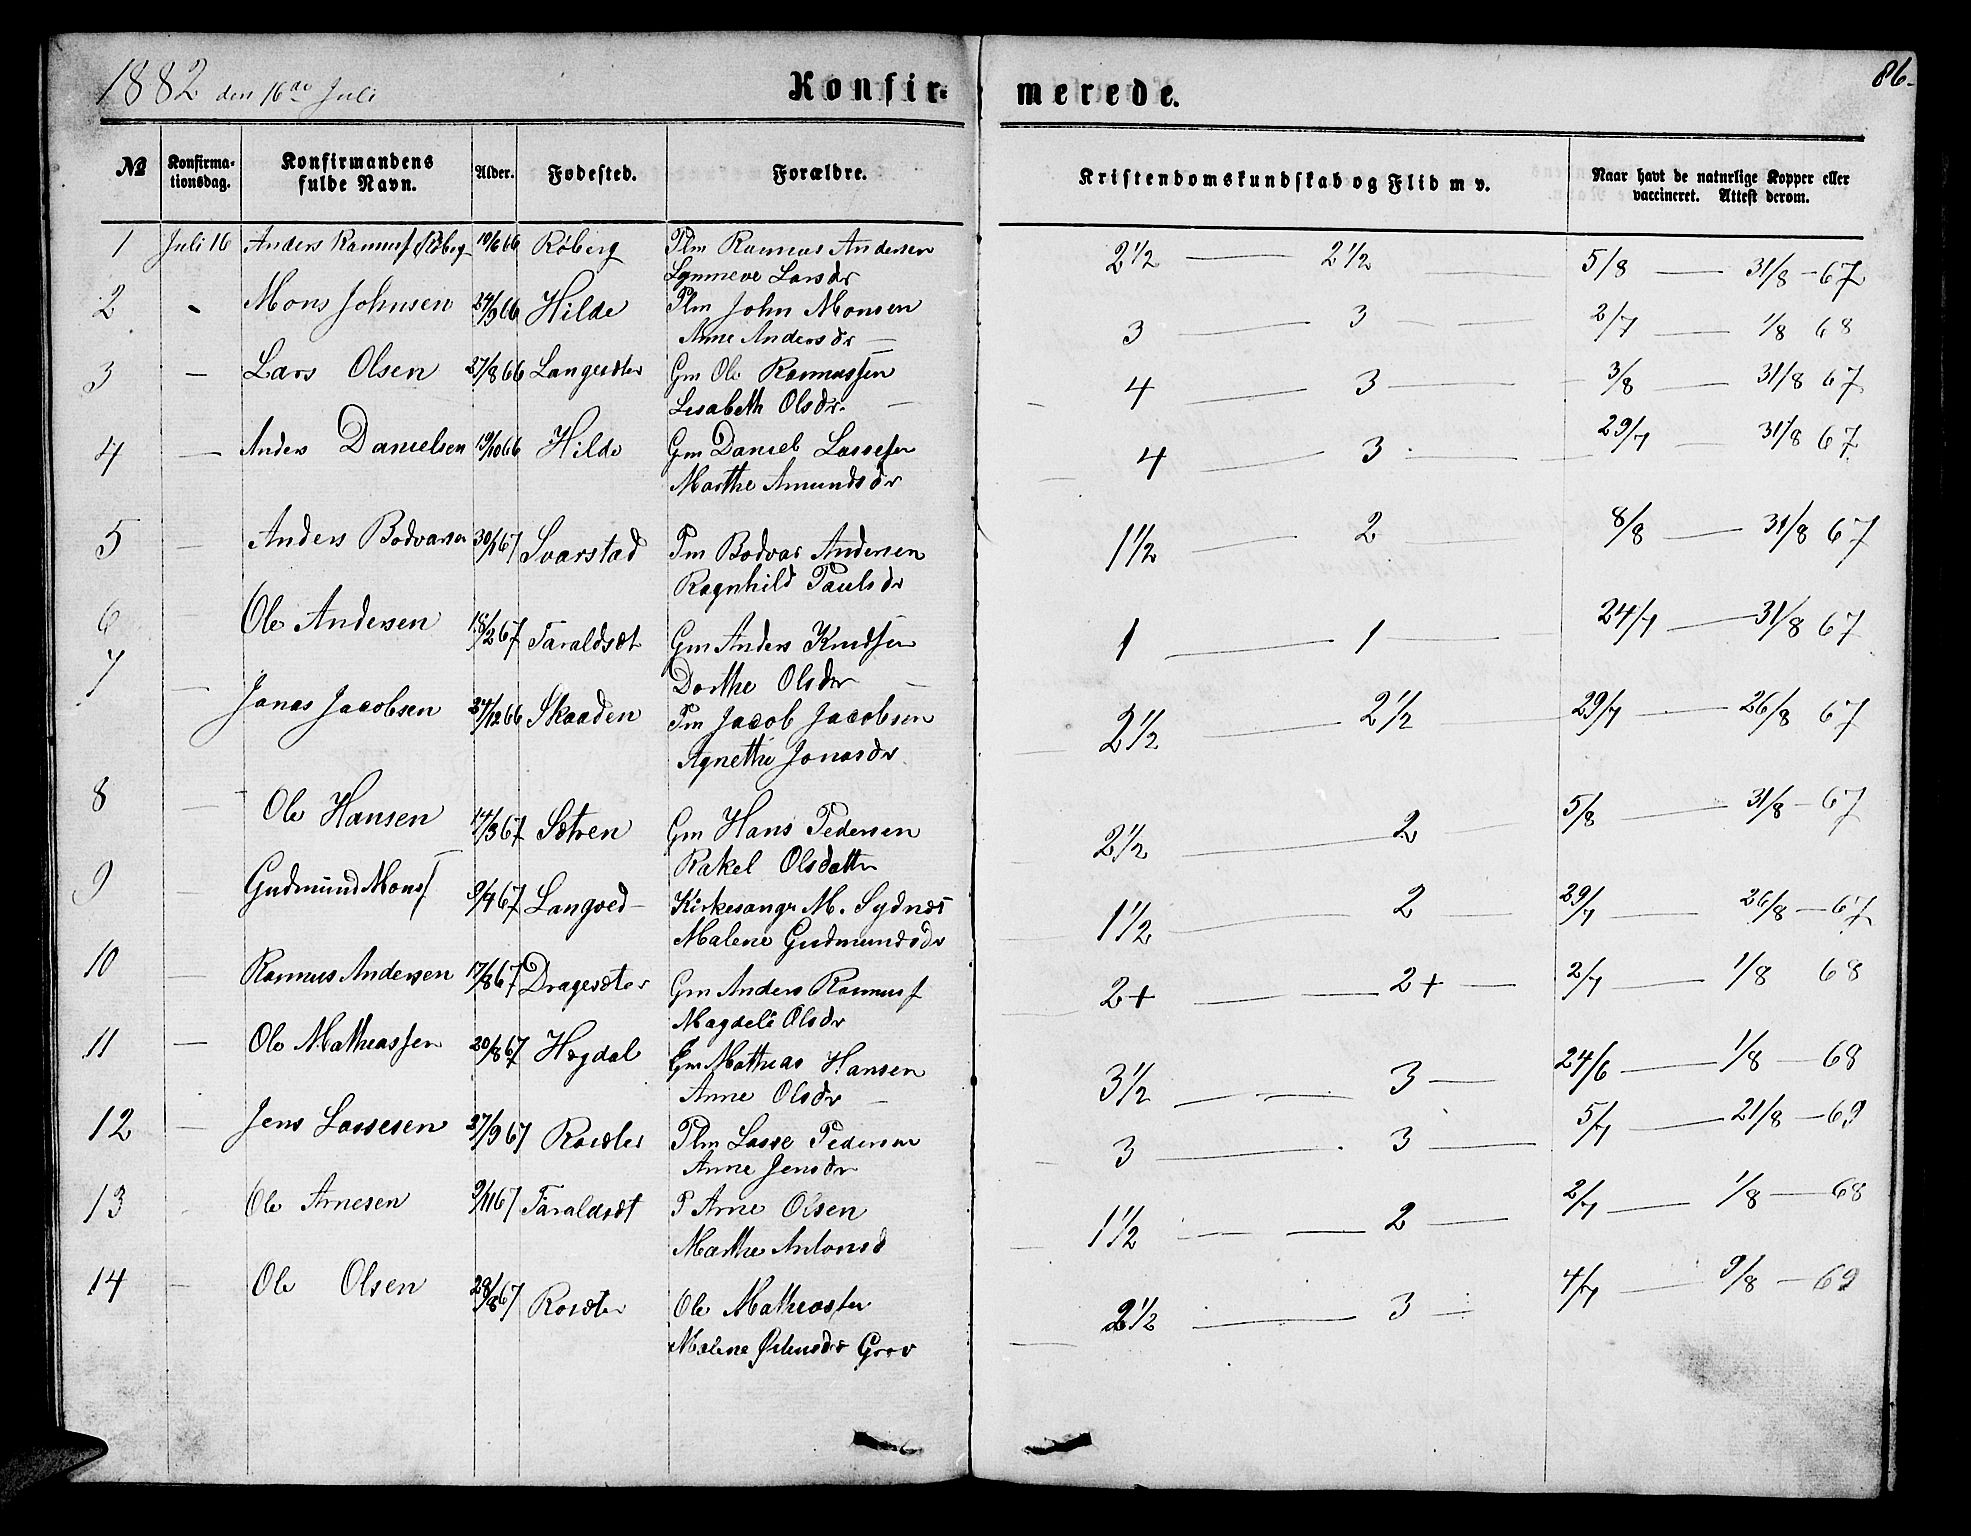 1882 den 16de Juli Konfir- merede. 86.
№ Konfirmationsdag. Konfirmandens fulde Navn. Alder. Fødested. Forældre. Kristendomskundskab og Flid m v. Naar havt de naturlige Kopper eller vaccineret. Attest derom.
1 Juli 16 Anders Rasmuss Röberg 10/6 66 Röberg Plm Rasmus Andersen 2 1/2 — 2 1/2 — 5/8 — 31/8 - 67
Larsdr
2 - Mons Johnsen 24/9 66 Hilde Plm John Monsen 3 — 3 — 2/7 — 1/8 68
Anne Andersdr —
3 — Lars Olsen 27/8 66 Gm Ole Rasmussen 4 — 3 — 3/8 — 31/8 67
Lisabeth Olsdr. —
4 — Anders Danielsen 19/10 66 Hilde Gm Daniel Lassesen 4 — 3 — 29/7 — 31/8 67
Marthe Amundsdr
5 — Anders Bodvarsen 30/1 67 Svarstad Pm Bodvar Andersen 1 1/2 — 2 — 8/8 — 31/8 67
Ragnhild Paulsdr
6 Ole Andersen 18/2 67 Taraldsæt Gm Anders Knudsen 1 — 1 — 24/7 — 31/8 67
Dorthe Olsdr —
7 — Jonas Jacobsen 24/12 66 Skaaden Pm Jacob Jacobsen 2 1/2 — 2 1/2 29/7 — 26/8 67
Agnethe Jonasdr
8 — Ole Hansen 14/3 67 Sætren Gm Hans Pedersen 2 1/2 — 2 — 5/8 — 31/8 - 67
Rakel Olsdatter
9 — Gudmund Monss 9/7 67 Langved Kirkesangr M. Sydnæs 1 1/2 — 2 — 29/7 — 26/8 - 67
Malene Gudmundsdr
10 — Rasmus Andersen 17/8 67 Dragesæter Gm Anders Rasmuss 2+ — 2+ — 2/7 — 1/8 68
Magdele Olsdr
11 — Ole Mathiassen 20/8 67 Høgdal Gm Mathias Hansen 3 1/2 — 3 — 24/6 — 1/8 — 68
Anne Olsdr —
12 — Jens Lassesen 27/9 67 Plm Lasse Pedersen 3 — 3 — 5/7 — 21/8 - 69
Anne Jensdr
13 Ole Arnesen 9/11 67 Taraldsæt P Arne Olsen 1 1/2 — 2 — 2/7 — 1/8 — 68
Marthe Antonsd
14 — Ole Olsen 28/8 67 Ole Mathiassen 2 1/2 — 3 — 4/7 — 9/8 — 69
Malene Grov